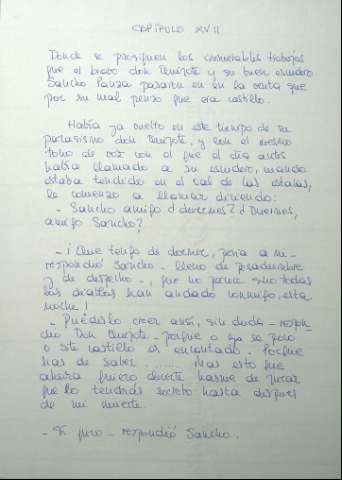 CAPÍTULO XVII
Donde se prosiguen los innumerables trabajos
que el bravo don Quijote y su buen escudero
Sancho Panza pasaron en la venta que
por su mal pensó que era castillo.
Había ya vuelto en este tiempo de su
parasismo don Quijote, y con el mesmo
tono de voz con el que el día antes
había llamado a su escudero, cuando
estaba tendido en el val de las estacas,
le comenzó a llamar diciendo:
- Sancho amigo ¿duermes? ¿Duermes,
amigo Sancho?
- ¡Que tengo de dormir, pesia a mí -
respondió Sancho - lleno de pesadumbre
y de despecho -, que no parece sino todos
los diablos han andado conmigo esta
noche!
- Puédeslo creer ansí, sin duda - respon
dió Don Quijote - porque o yo sé poco
o este castillo es encantado. Porque
has de saber ........ Mas esto que
ahora quiero decirte hasme de jurar
que lo tendrás secreto hasta después
de mi muerte.
- Sí juro - respondió Sancho.